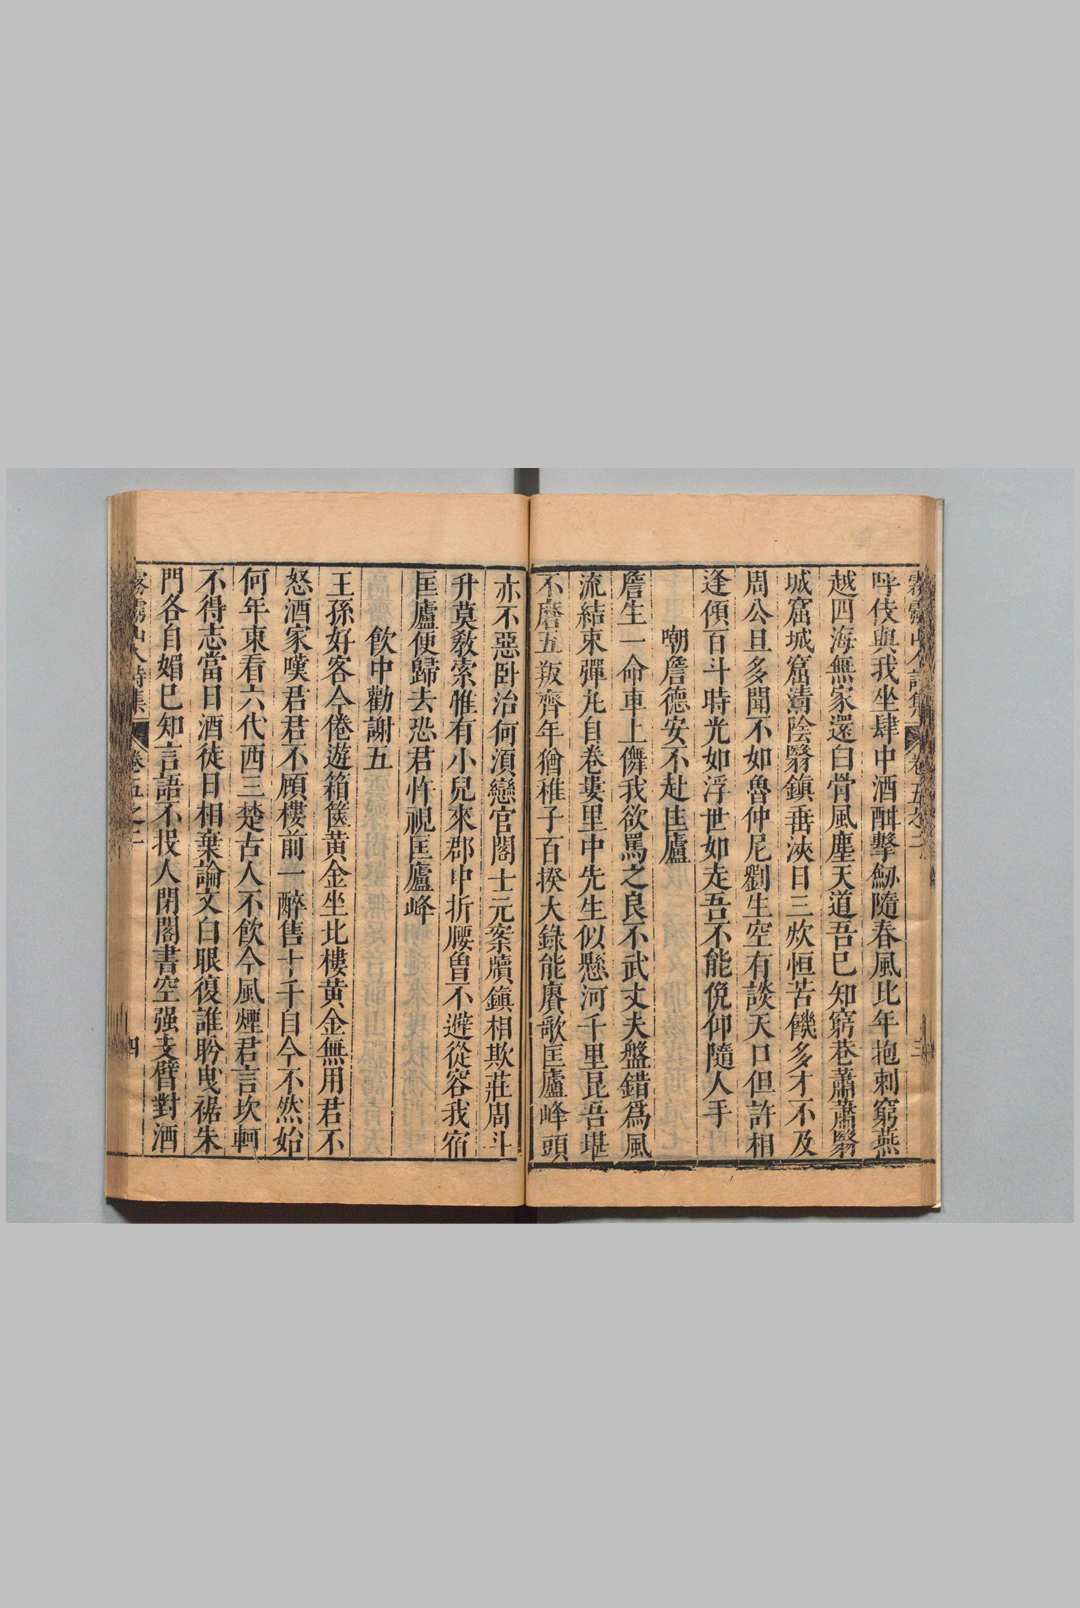 呼伎與我坐肆中酒酣擊劒隨春風比年抱刺窮燕
越四海無家還白骨風塵天道吾已知窮巷蕭蕭翳
城窟城窟清陰翳鎮垂浹日三炊恒苦饑多才不及
周公旦多聞不如魯仲尼劉生空有談天口但許相
逢傾百斗時光如浮世如走吾不能俛仰隨人手
嘲詹德安不赴匡廬
詹生一命車上儛我欲罵之良不武丈夫盤錯爲風
流結束彈丸自卷婁里中先生似懸河千里昆吾堪
不磨五叛齊年猶稚子百揆大錄能賡歌匡廬峰頭
亦不惡卧治何湏戀官閣士元案牘鎮相欺莊周斗
升莫敎索惟有小兒來郡中折腰曽不避從容我宿
匡廬便歸去恐君忤視匡廬峰
飲中勸謝五
王孫好客今倦遊箱篋黄金坐北樓黄金無用君不
怒酒家嘆君君不顧樓前一醉售十千自今不然始
何年東看六代西三楚古人不飲今風煙君言坎軻
不得志當日酒徒日相棄論文白眼復誰盻曳裾朱
門各自媚已知言語不哉人閉閣書空强支臂對酒
霧靈山人詩集 卷五之二 四